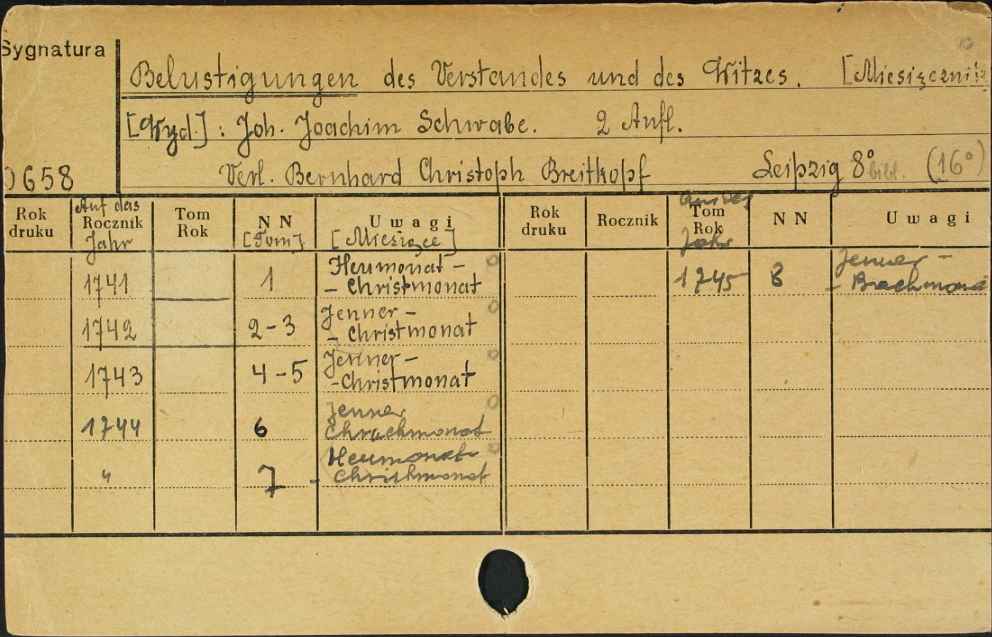 Sygnatura
Belustigungen des Verstandes und des Witzes. [Miesięcznik
[Wyd.] : Joh. Joachim Schwabe. 2 Aufl.
0658 Verl. Bernhard Christoph Breitkopf Leipzig 8° bibl. (16°)
Rok druku
Auf das Rocznik Jahr
Tom Rok
NN [Tom]
Uwagi [Miesięce]
Rok druku
Rocznik
Tom Rok Jahr
NN
Uwagi
1741 1 Heumonat – – Christmonat 1745 8 Jenner – – Brachmona
1742 2-3 Jenner – – Christmonat
1743 4-5 Jenner – – Christmonat
1744 6 Jenner
" 7 Heumonat –